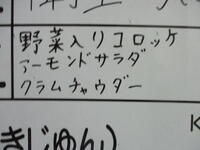 野菜入りコロッケ
アーモンドサラダ
クラムチャウダー
きじゅん)
K